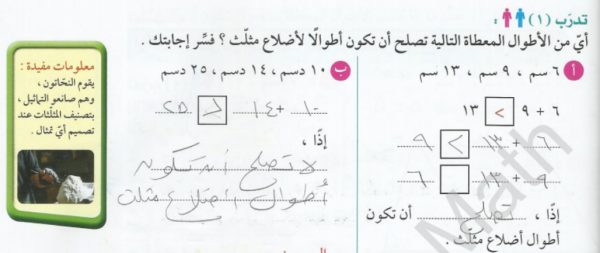 تدرّب (١) :
أيّ من الأطوال المعطاة التالية تصلح أن تكون أطوالًا لأضلاع مثلّث ؟ فسّر إجابتك .
أ ٦ سم ، ٩ سم ، ١٣ سم
٦ + ٩ > ١٣
٦ + ١٣ > ٩
٩ + ١٣ ٦
إذًا ، تصلح أن تكون
أطوال أضلاع مثلّث .
ب ١٠ دسم ، ١٤ دسم ، ٢٥ دسم
١٠ + ١٤ < ٢٥
إذًا ،
لا تصلح أن تكون
أطوال أضلاع مثلث
معلومات مفيدة :
يقوم النحّاتون ،
وهم صانعو التماثيل ،
بتصنيف المثلّثات عند
تصميم أيّ تمثال .
Math